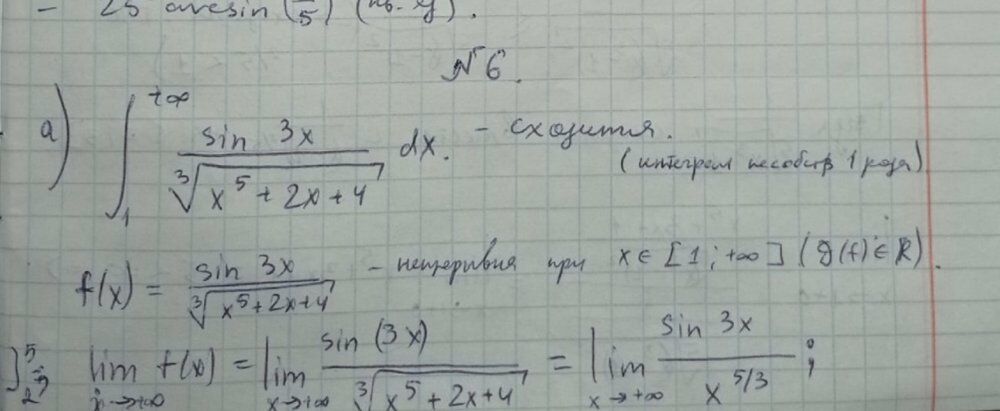 - 25 arcsin (/5)
№6.
a) ∫₁^{+∞} sin 3x / ∛(x⁵ + 2x + 4) dx. - сходится.
(интеграл несобств 1 рода)
f(x) = sin 3x / ∛(x⁵+2x+4) - непрерывна при x ∈ [1; +∞] (D(f) ∈ R).
lim_{x→+∞} f(x) = lim_{x→+∞} sin (3x) / ∛(x⁵ + 2x + 4) = lim_{x→+∞} sin 3x / x^{5/3} ;